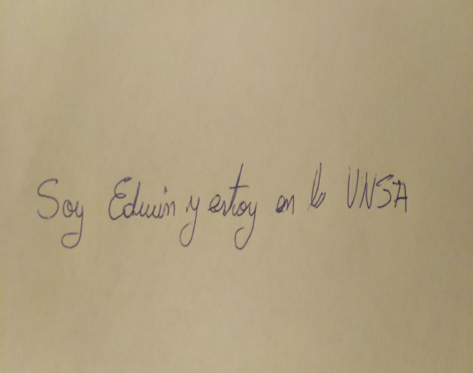 Soy Edwin y estoy en la UNSA